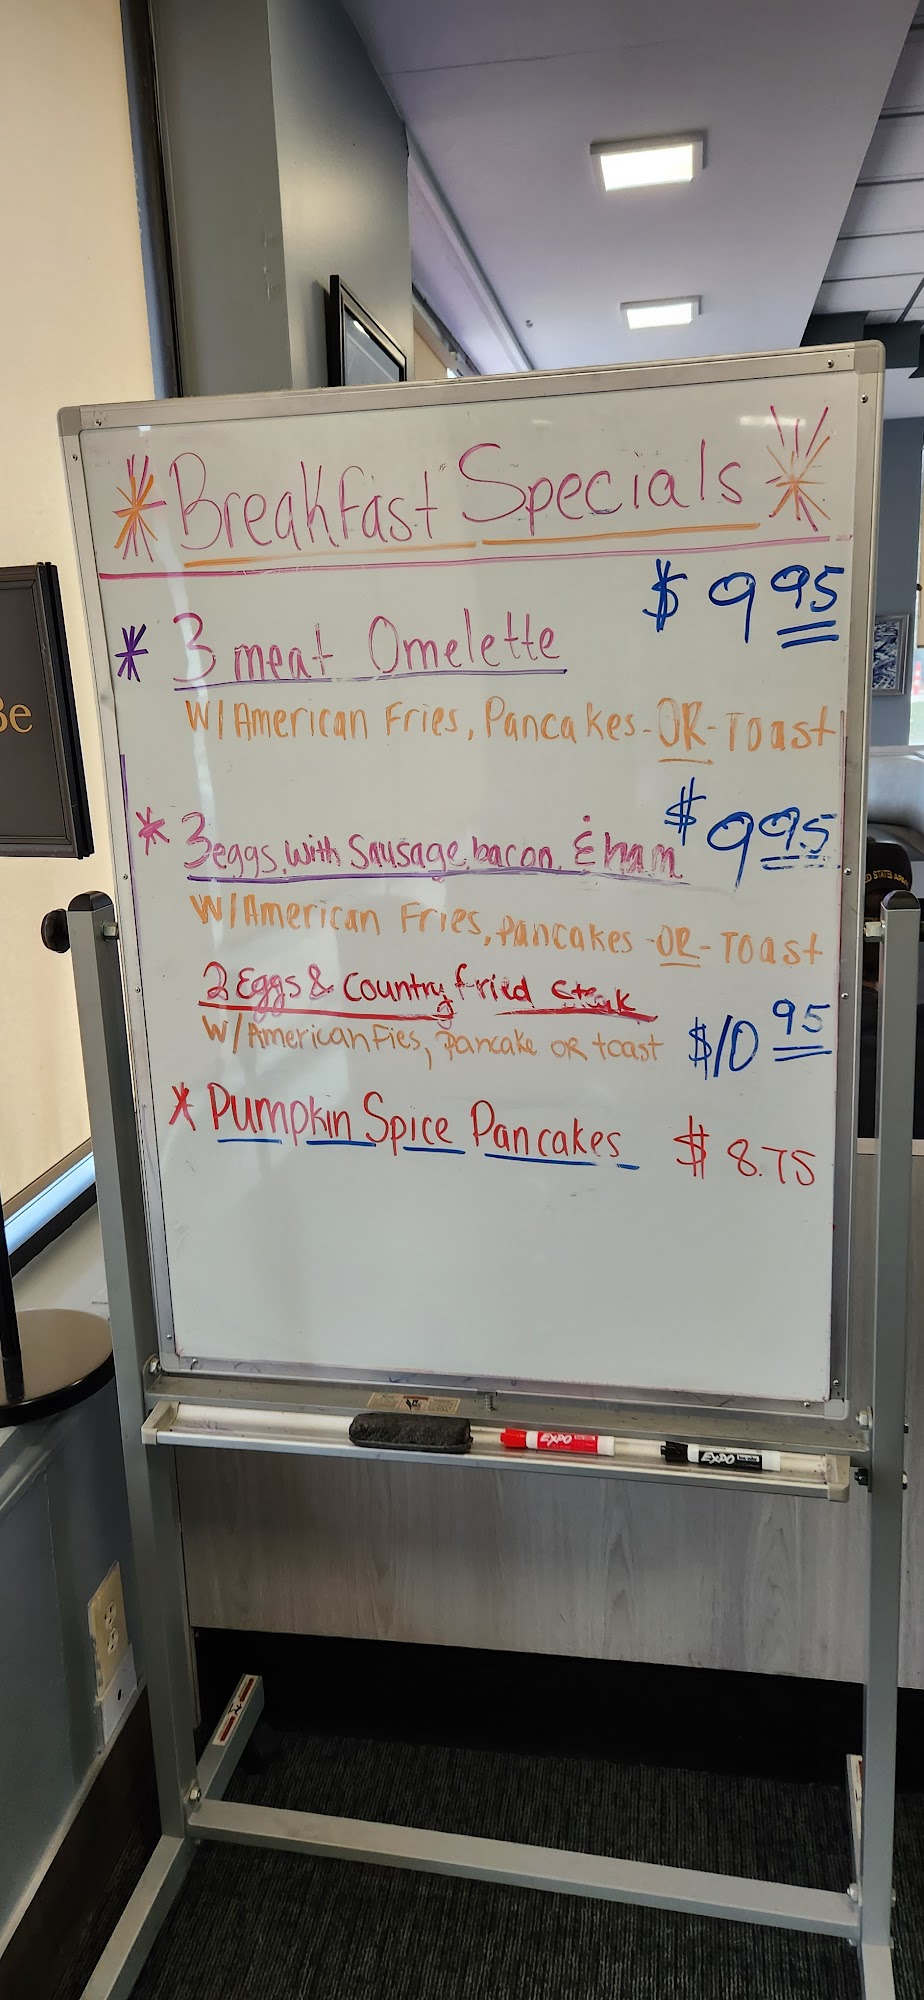 Breakfast Specials
$ 9 95
* 3 meat Omelette
W/ American Fries, Pancakes -OR- Toast
$ 9 95
* 3 eggs, with Sausage, bacon, & ham
W/ American Fries, pancakes -OR- Toast
2 Eggs & Country fried Steak
W/ American Fies, pancake OR toast $10 95
* Pumpkin Spice Pancakes $ 8.75
Be
EXPO
EXPO